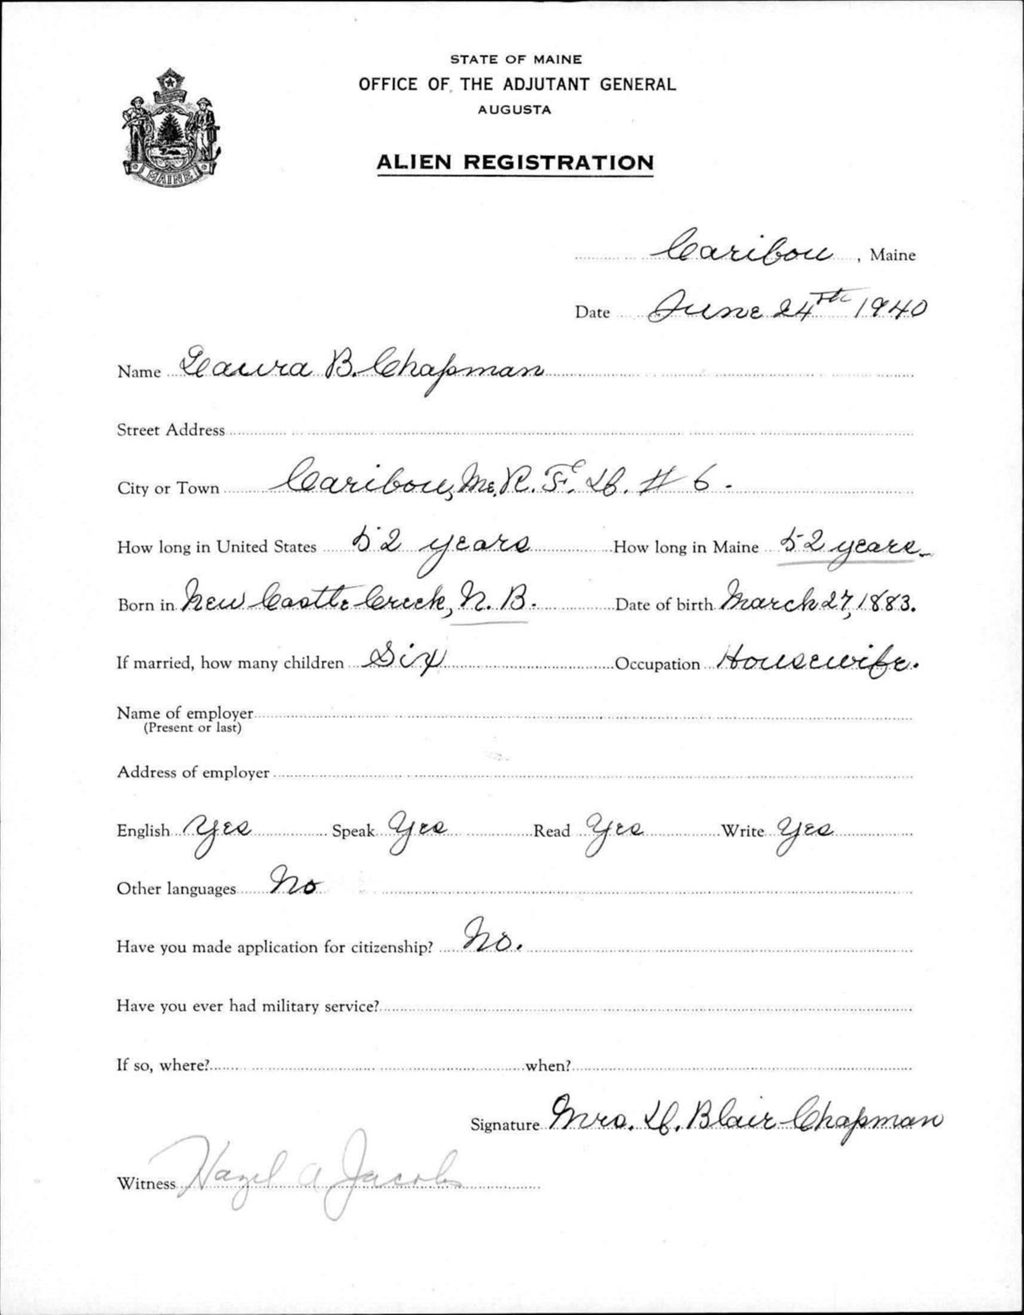 STATE OF MAINE
OFFICE OF THE ADJUTANT GENERAL
AUGUSTA
ALIEN REGISTRATION
MAINE
Caribou, Maine
Date June 24th 1940
Name Laura B. Chapman
Street Address
City or Town Caribou, Me. R. F. D. # 6.
How long in United States 52 years How long in Maine 52 years
Born in New Castle Creek, N. B. Date of birth March 27, 1883.
If married, how many children Six Occupation Housewife.
Name of employer
(Present or last)
Address of employer
English Yes Speak Yes Read Yes Write Yes
Other languages No
Have you made application for citizenship? No.
Have you ever had military service?
If so, where? when?
Signature Mrs. D. Blair Chapman
Witness Hazel A Jacobs